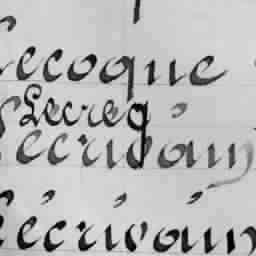 Lecoque
Lecreq
l'écrivain
l'écrivain